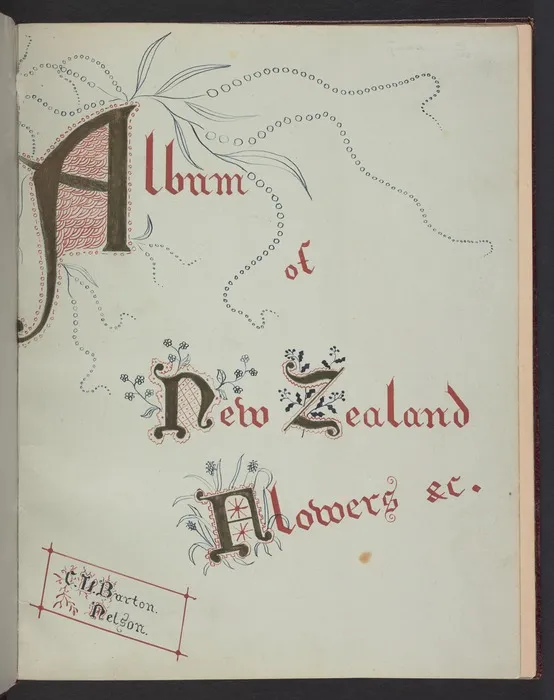 Album
of
New Zealand
Flowers &c.
C. H. Barton.
Nelson.